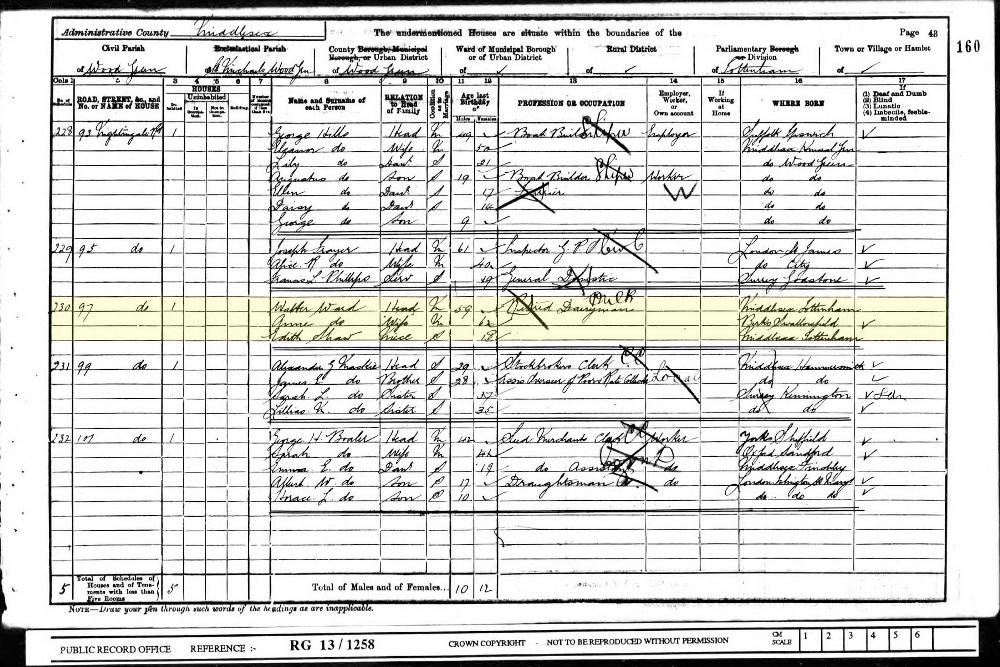 Administrative County Middlesex
The undermentioned Houses are situate within the boundaries of the
Page 43
160
Civil Parish
of Wood Green
Ecclesiastical Parish
of St Michaels Wood Gn
County Borough, Municipal Borough, or Urban District
of Wood Green
Ward of Municipal Borough or of Urban District
of
Rural District
of
Parliamentary Borough or Division
of Tottenham
Town or Village or Hamlet
of
Cols 1 2 3 4 5 6 7 8 9 10 11 12 13 14 15 16 17
No. of Schedule
ROAD, STREET, &c., and No. or NAME of HOUSE
HOUSES
Inhabited
Uninhabited
In Occupation
Not in Occupation
Building
Name and Surname of each Person
RELATION to Head of Family
Condition as to Marriage
Age last Birthday of
Males Females
PROFESSION OR OCCUPATION
Employer, Worker, or Own account
If Working at Home
WHERE BORN
If (1) Deaf and Dumb (2) Blind (3) Lunatic (4) Imbecile, feeble-minded
228 93 Nightingale Rd 1 George Hills Head M 49 Boat Builder Ships Employer Suffolk Ipswich
Eleanor do Wife M 50 Middlesex Kensal Gn
Lily do Daur S 21 do Wood Green
Augustus do Son S 19 Boat Builder Ships Worker do do
Ellen do Daur S 17 W do do
Daisy do Daur S 14 do do
George do Son 9 do do
229 95 do 1 Joseph Head M 61 Inspector G. P. O London St James
Alice R. do Wife M 40 do City
Frances L Phillips Serv S 19 General Domestic Surrey Godstone
230 97 do 1 Walter Ward Head M 59 Retired Dairyman Milk Middlesex Tottenham
Annie do Wife M 62 Berks Swallowfield
Edith Shaw Niece S 18 Middlesex Tottenham
231 99 do 1 Alexander G Mackie Head S 29 Stockbrokers Clerk Middlesex Hammersmith
James do Brother S 28 Assis Overseer & Poor Rate Collector Local do do
Sarah L. do Sister S 37 Surrey Kennington
Lillias do Sister S 35 do do
232 101 do 1 George H. Head M 42 Seed Merchants Clerk Worker Yorks Sheffield
Sarah do Wife M 42 Oxford Sandford
Emma E. do Daur S 19 do Assistant do Middlesex Finchley
Albert W. do Son S 17 Draughtsman do London Islington St Marys
Horace L. do Son S 10 do do do
5 Total of Schedules of Houses and of Tenements with less than Five Rooms 5
Total of Males and of Females... 10 12
NOTE—Draw your pen through such words of the headings as are inapplicable.
PUBLIC RECORD OFFICE REFERENCE :- RG 13/1258 CROWN COPYRIGHT - NOT TO BE REPRODUCED WITHOUT PERMISSION CM SCALE 1 2 3 4 5 6